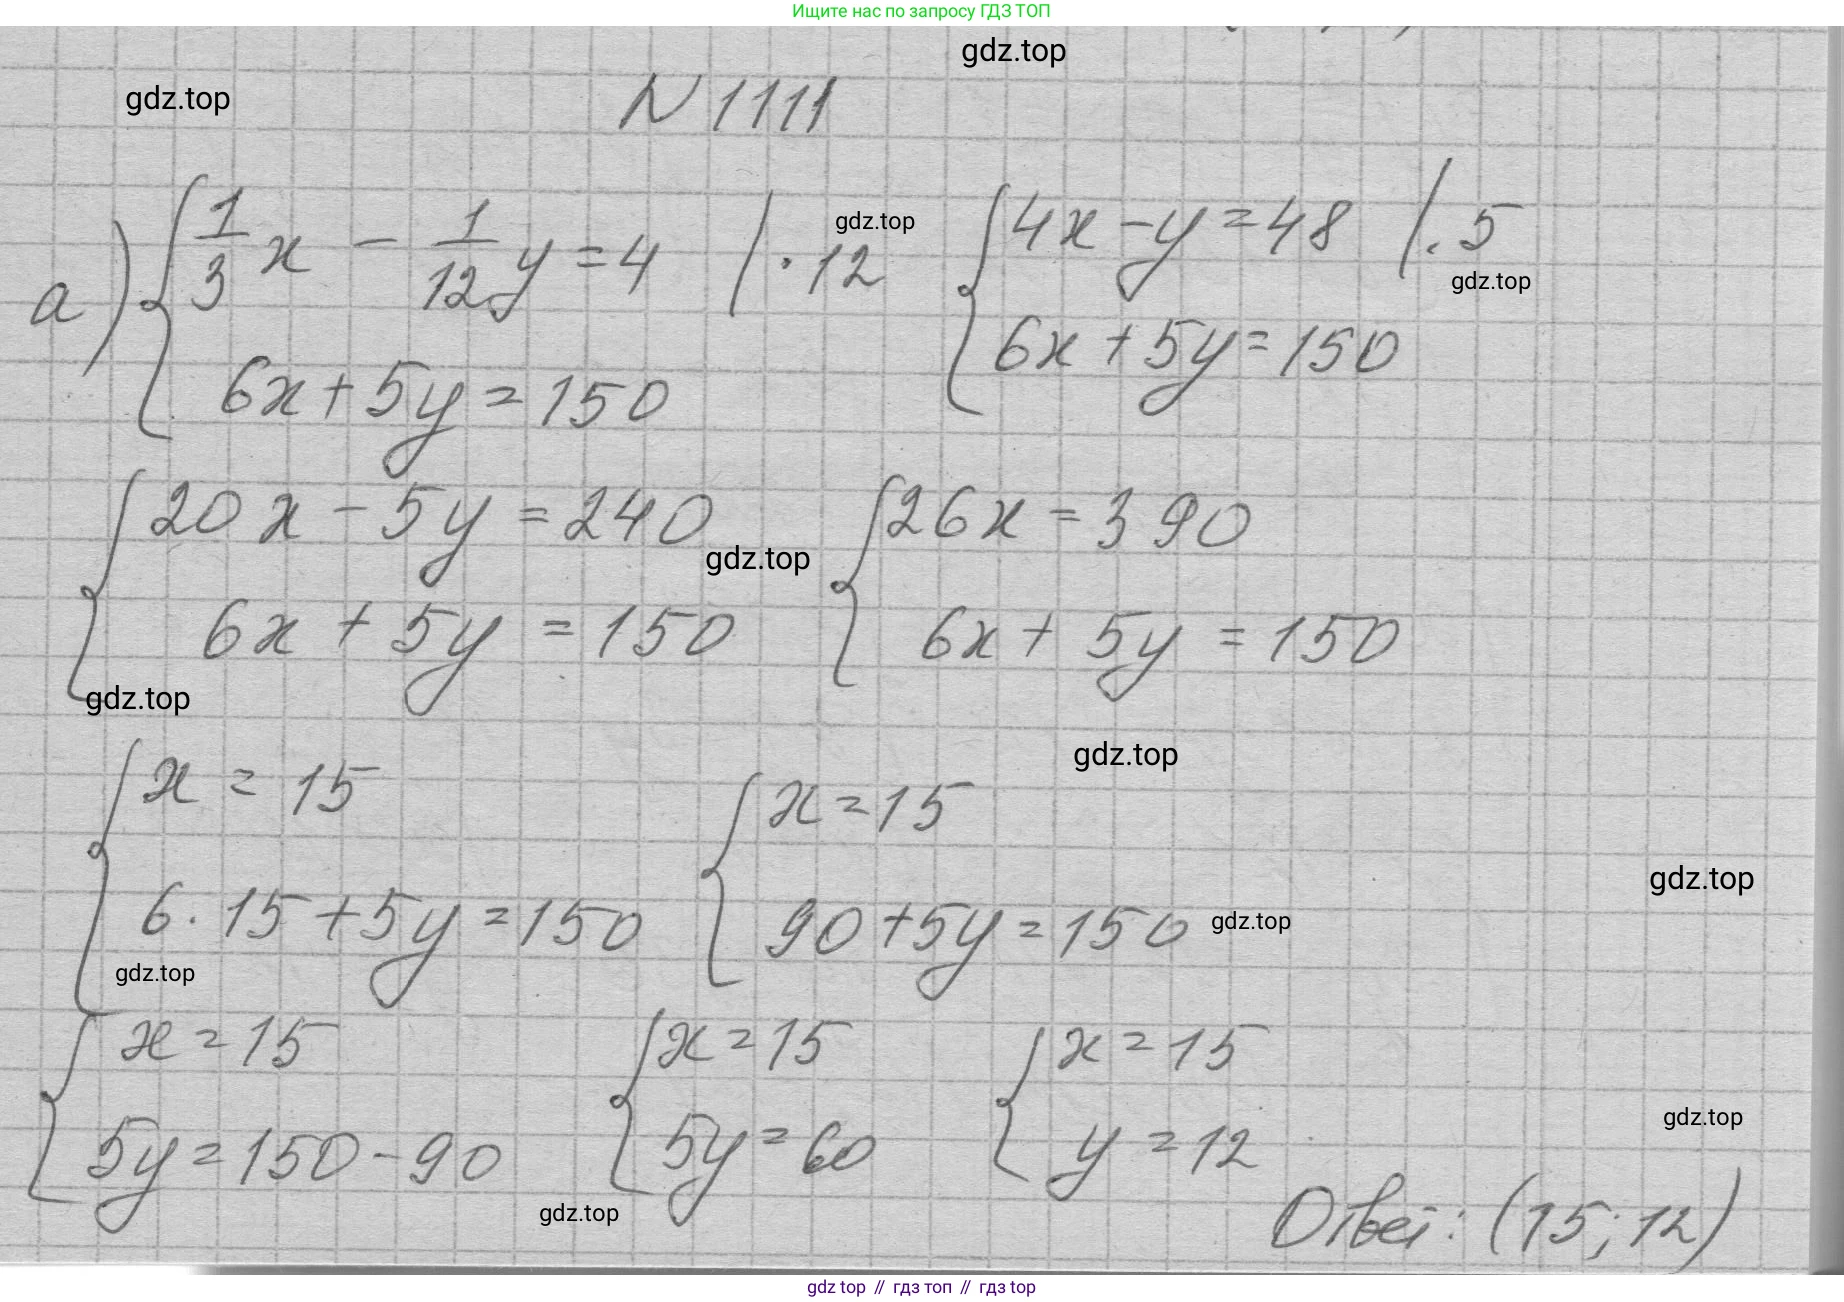 Ищите нас по запросу ГДЗ ТОП
gdz.top
gdz.top
N 1111
а) { 1/3 x - 1/12 y = 4 | · 12
6x + 5y = 150
gdz.top
{ 4x - y = 48 | · 5
gdz.top
6x + 5y = 150
{ 20x - 5y = 240
6x + 5y = 150
gdz.top
{ 26x = 390
6x + 5y = 150
gdz.top
gdz.top
{ x = 15
6 · 15 + 5y = 150
{ x = 15
90 + 5y = 150
gdz.top
gdz.top
gdz.top
{ x = 15
5y = 150 - 90
{ x = 15
5y = 60
{ x = 15
y = 12
gdz.top
gdz.top
Ответ: (15; 12)
gdz top // гдз топ // гдз top